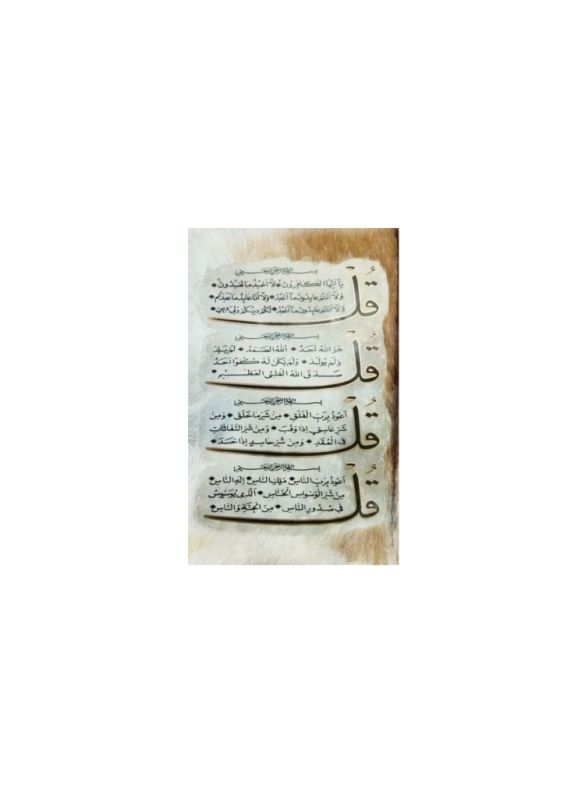 بسم الله الرحمن الرحيم
قُلْ يَا أَيُّهَا الْكَافِرُونَ * لَا أَعْبُدُ مَا تَعْبُدُونَ *
وَلَا أَنْتُمْ عَابِدُونَ مَا أَعْبُدُ * وَلَا أَنَا عَابِدٌ مَا عَبَدْتُمْ *
وَلَا أَنْتُمْ عَابِدُونَ مَا أَعْبُدُ * لَكُمْ دِينُكُمْ وَلِيَ دِينِ *
بسم الله الرحمن الرحيم
قُلْ هُوَ اللَّهُ أَحَدٌ * اللَّهُ الصَّمَدُ * لَمْ يَلِدْ
وَلَمْ يُولَدْ * وَلَمْ يَكُنْ لَهُ كُفُوًا أَحَدٌ
صَدَقَ اللَّهُ الْعَلِيُّ الْعَظِيمُ *
بسم الله الرحمن الرحيم
قُلْ أَعُوذُ بِرَبِّ الْفَلَقِ * مِنْ شَرِّ مَا خَلَقَ * وَمِنْ
شَرِّ غَاسِقٍ إِذَا وَقَبَ * وَمِنْ شَرِّ النَّفَّاثَاتِ
فِي الْعُقَدِ * وَمِنْ شَرِّ حَاسِدٍ إِذَا حَسَدَ *
بسم الله الرحمن الرحيم
قُلْ أَعُوذُ بِرَبِّ النَّاسِ * مَلِكِ النَّاسِ * إِلَهِ النَّاسِ *
مِنْ شَرِّ الْوَسْوَاسِ الْخَنَّاسِ * الَّذِي يُوَسْوِسُ
فِي صُدُورِ النَّاسِ * مِنَ الْجِنَّةِ وَالنَّاسِ *